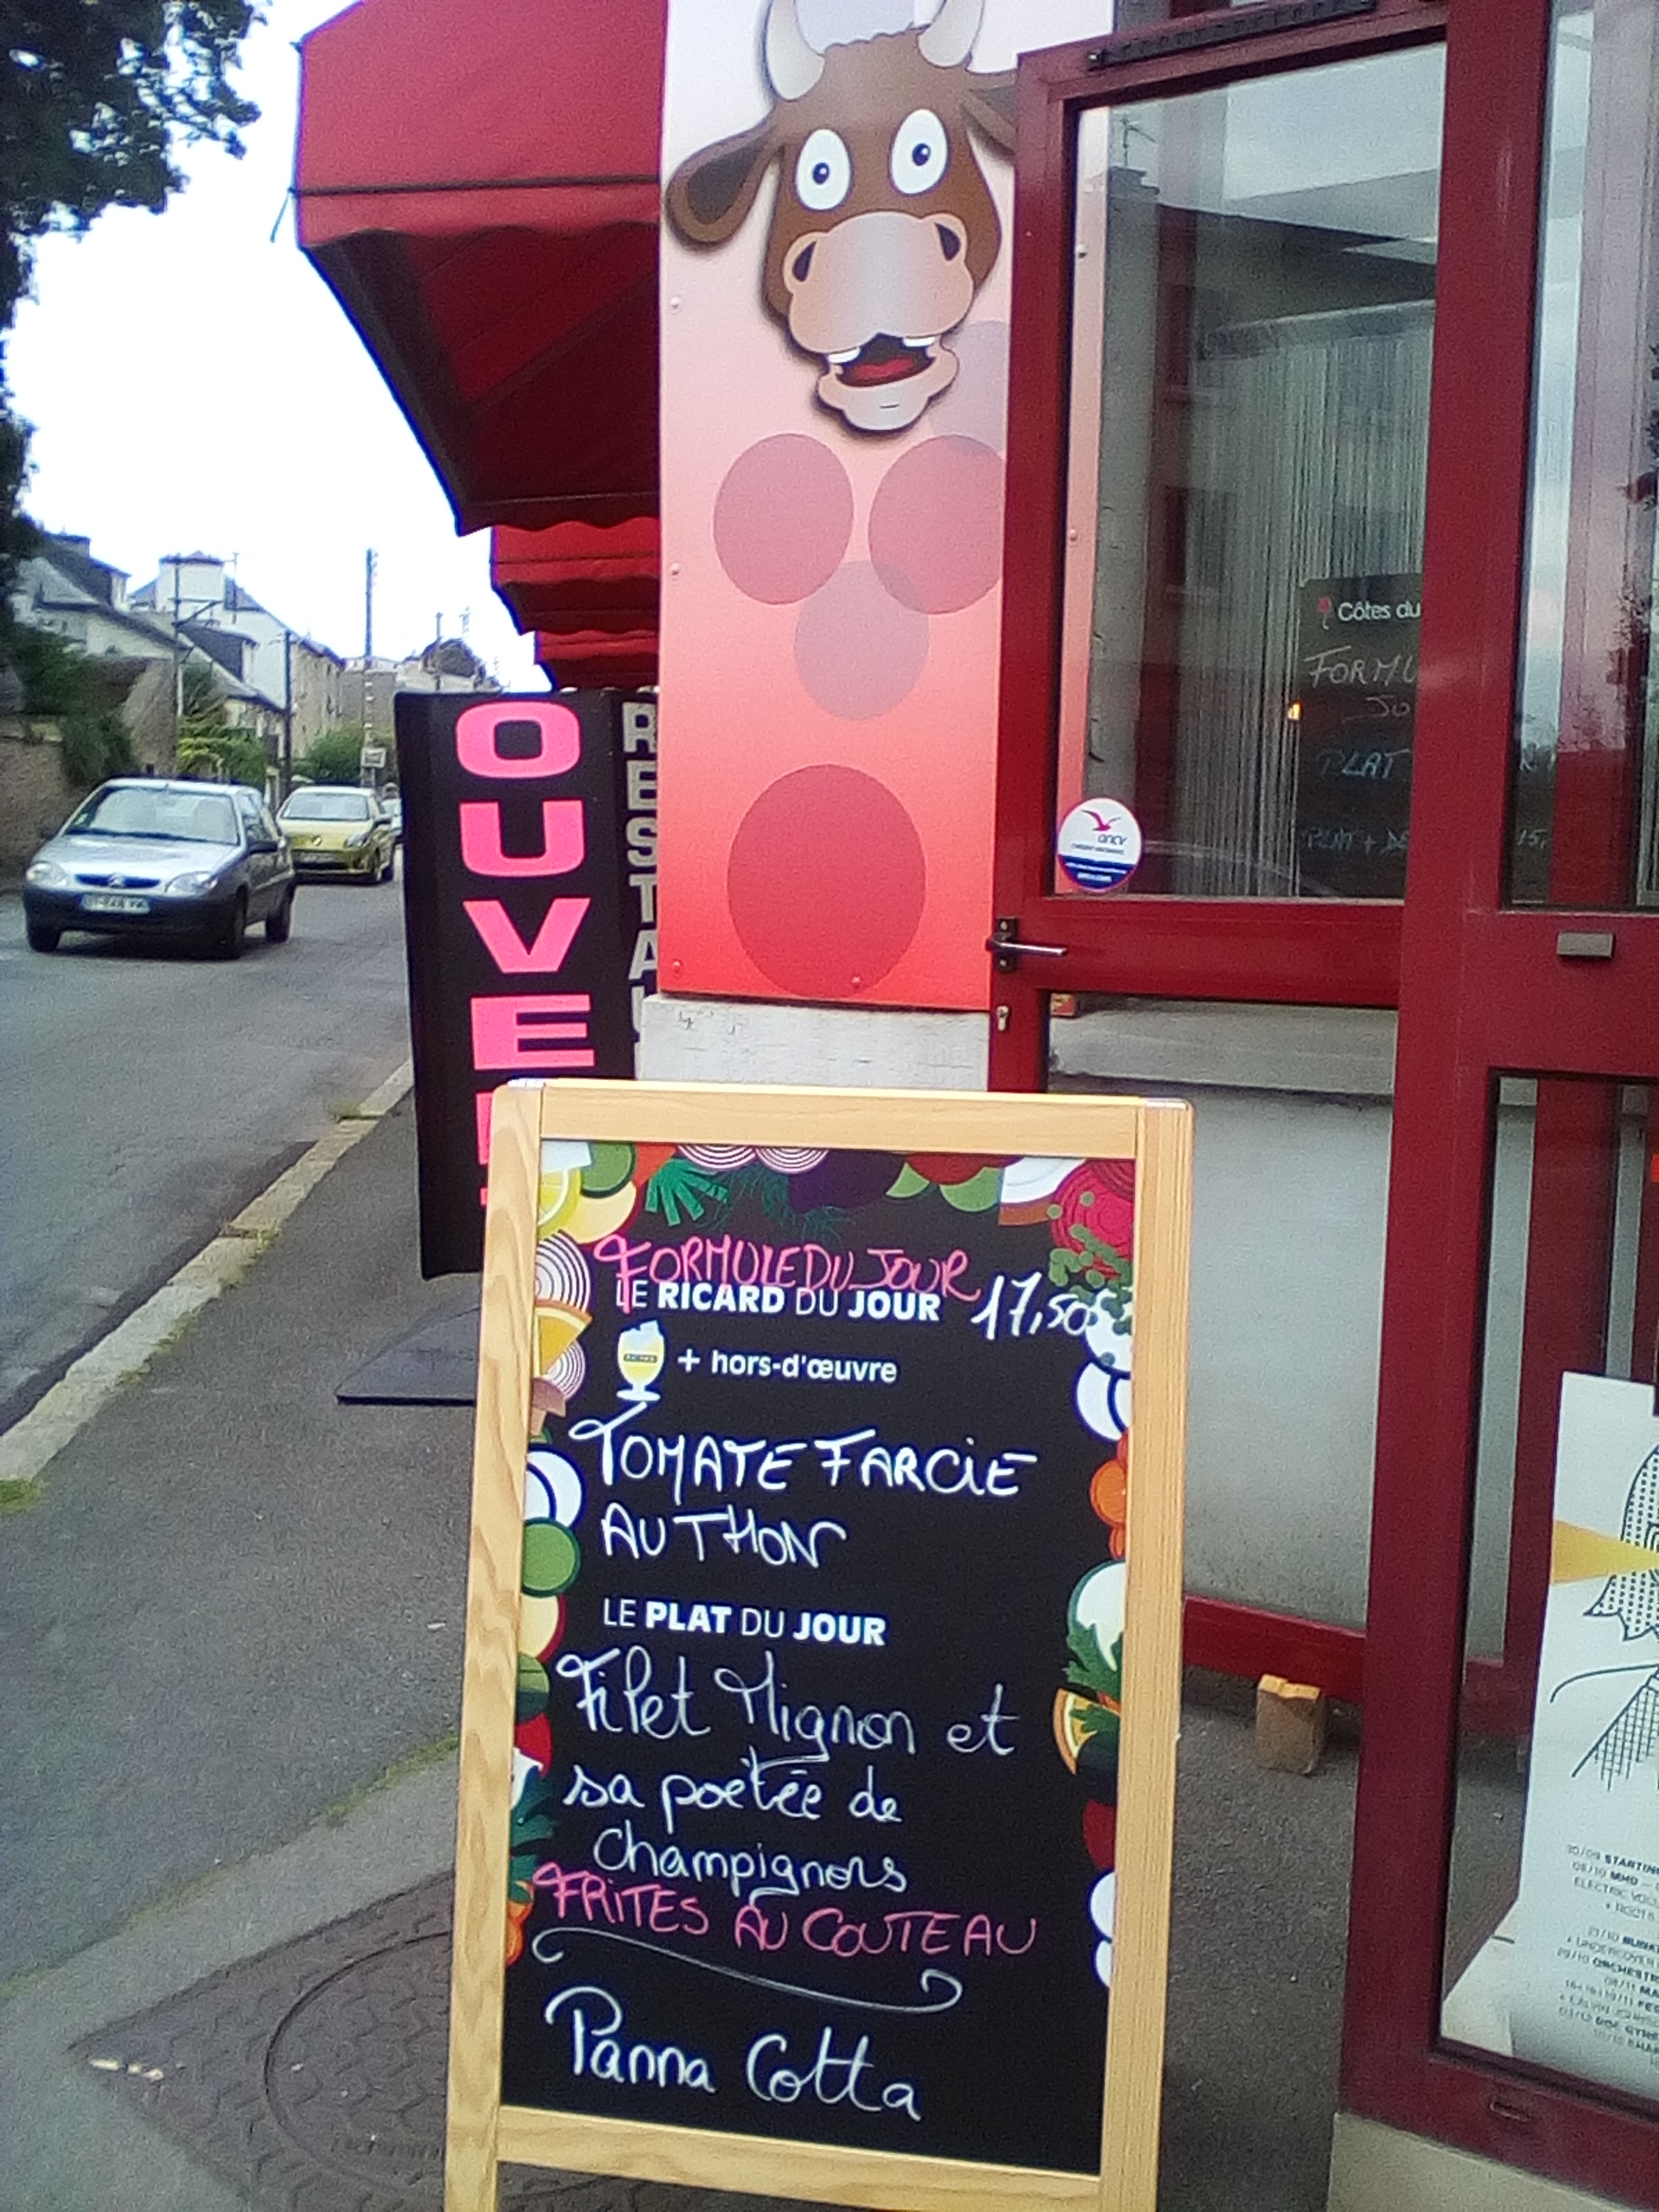 OUVE
RESTAU
Côtes du
FORMU
JO
PLAT
PLAT + DE
15,
ancv
FORMULE DU JOUR
LE RICARD DU JOUR 17,50€
+ hors-d'œuvre
TOMATE FARCIE
AU THON
LE PLAT DU JOUR
Filet Mignon et
sa poêtée de
Champignons
FRITES AU COUTEAU
Panna Cotta
30/09 STARTING
06/10 MHD